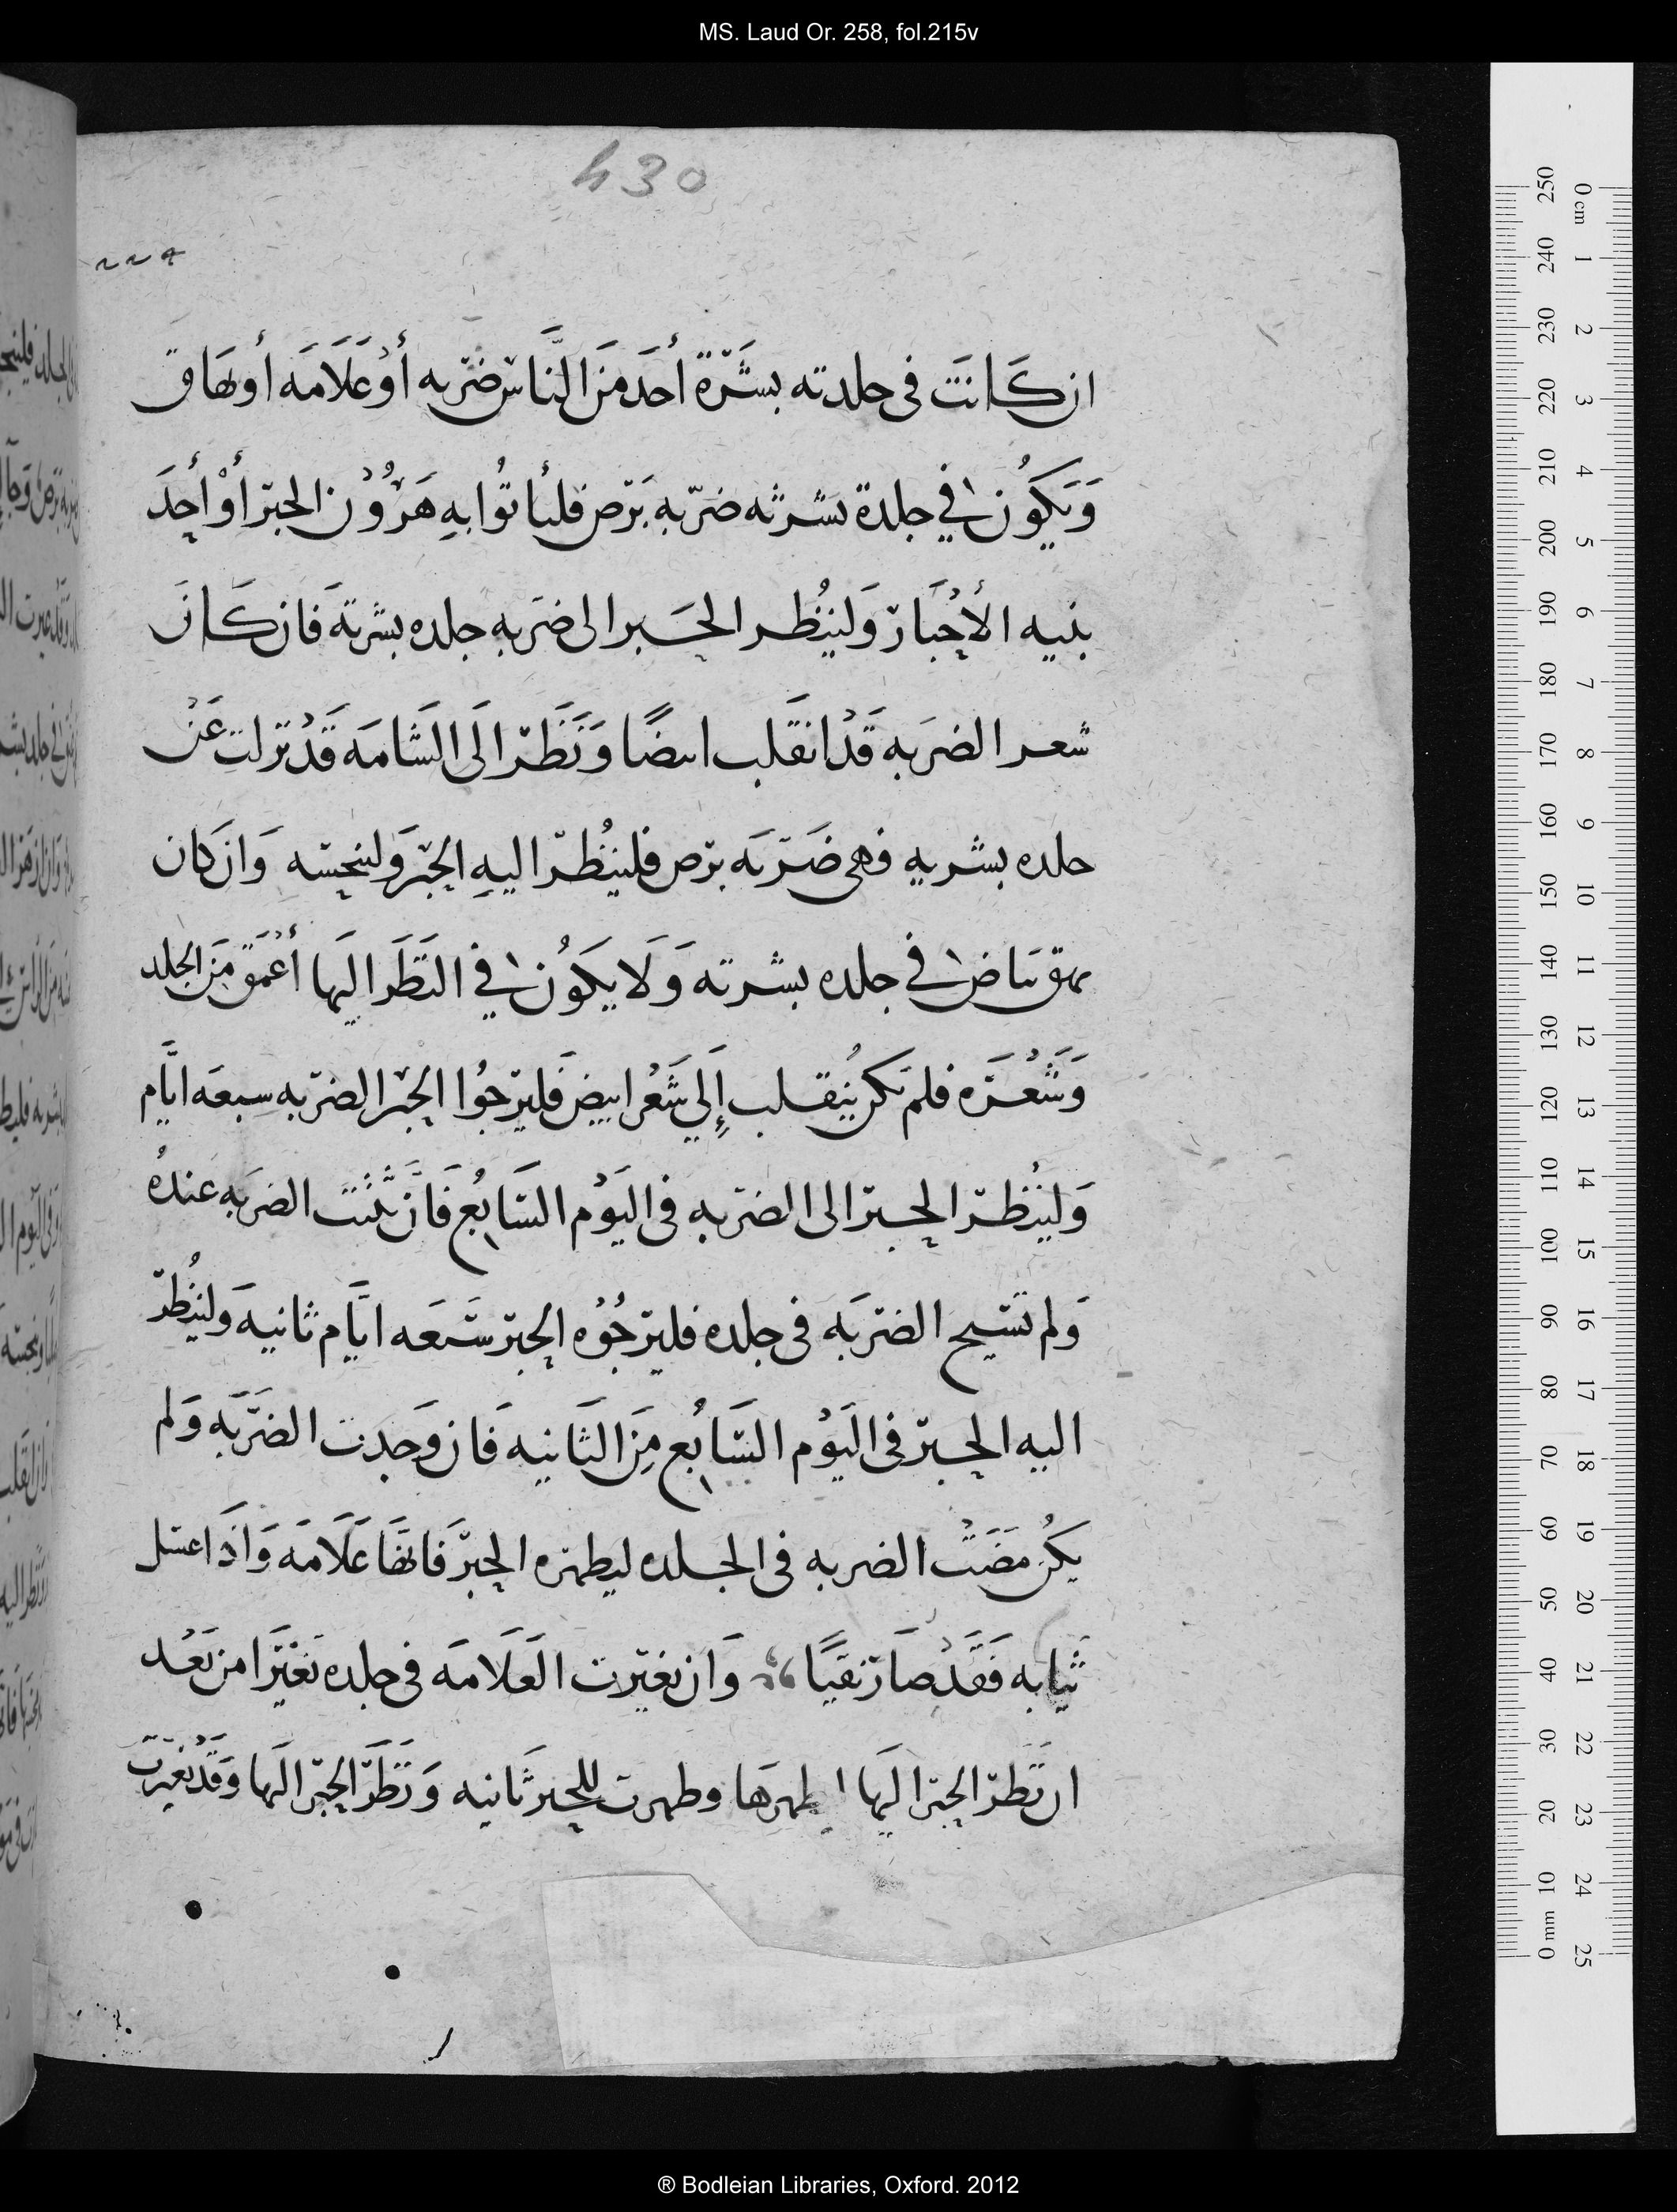 MS. Laud Or. 258, fol.215v
430
٢٢٩
ان كَانَت فى جلدته بشَرة أحَد مَن النَّاس ضَربه أوْ عَلَامَه أو بهَاق
وَيَكوُن في جلدة بشرته ضربه بَرَص فليأتوُا بهِ هَرُوْن الحبَر أوْ أحِدَ
بنيه الأحْبَار وَلينُظر الحَبر الى ضَربه جلده بشرتهَ فان كَانَ
شعر الضَربه قَدْ انقَلب ابيضًا وَنَظَر الَى الشَامَه قَدْ نزلت عَنْ
جلده بشريه فهى ضَربَه برَص فلينُظر اليهِ الحبَر ولينجسه وَان كان
بهق بياض في جلده بشرته وَلَا يكَوُن في النَظَر اليَها أعْمَق مَن الجلد
وَشَعْرَه فلم يكن ينُقلب إِلي شَعْر ابيض فَليَرجُوا الحبَر الضَربه سبعَه ايَّام
وَلينُظر الحبر الى الضربه فى اليَوْم السَابُع فَان ثَبَتَت الضَربه عندهُ
وَلم تَسَيح الضَربَه فى جلده فليرَجُوُه الحبر سَبعَه ايَّام ثانيه وَلينُظر
اليه الحبر فى اليَوْم السَابُع مِنَ الثَانيه فَان وَجدت الضَربَه وَلم
يكُن مَضَتْ الضربه فى الجلده ليطهره الحبَر فَانهَا عَلَامَه وَاذَا اغتسل
ثيابه فَقَدْ صَار نقيًا وَان تغيَرت العَلَامَه فى جلده تغَيَرَا من بَعْد
ان نَظر الحبَر اليَها ليطهرَها وطهرت للحبر ثَانيه وَنظَر الحبَر اليَها وقَدْ تغيَرت
® Bodleian Libraries, Oxford. 2012